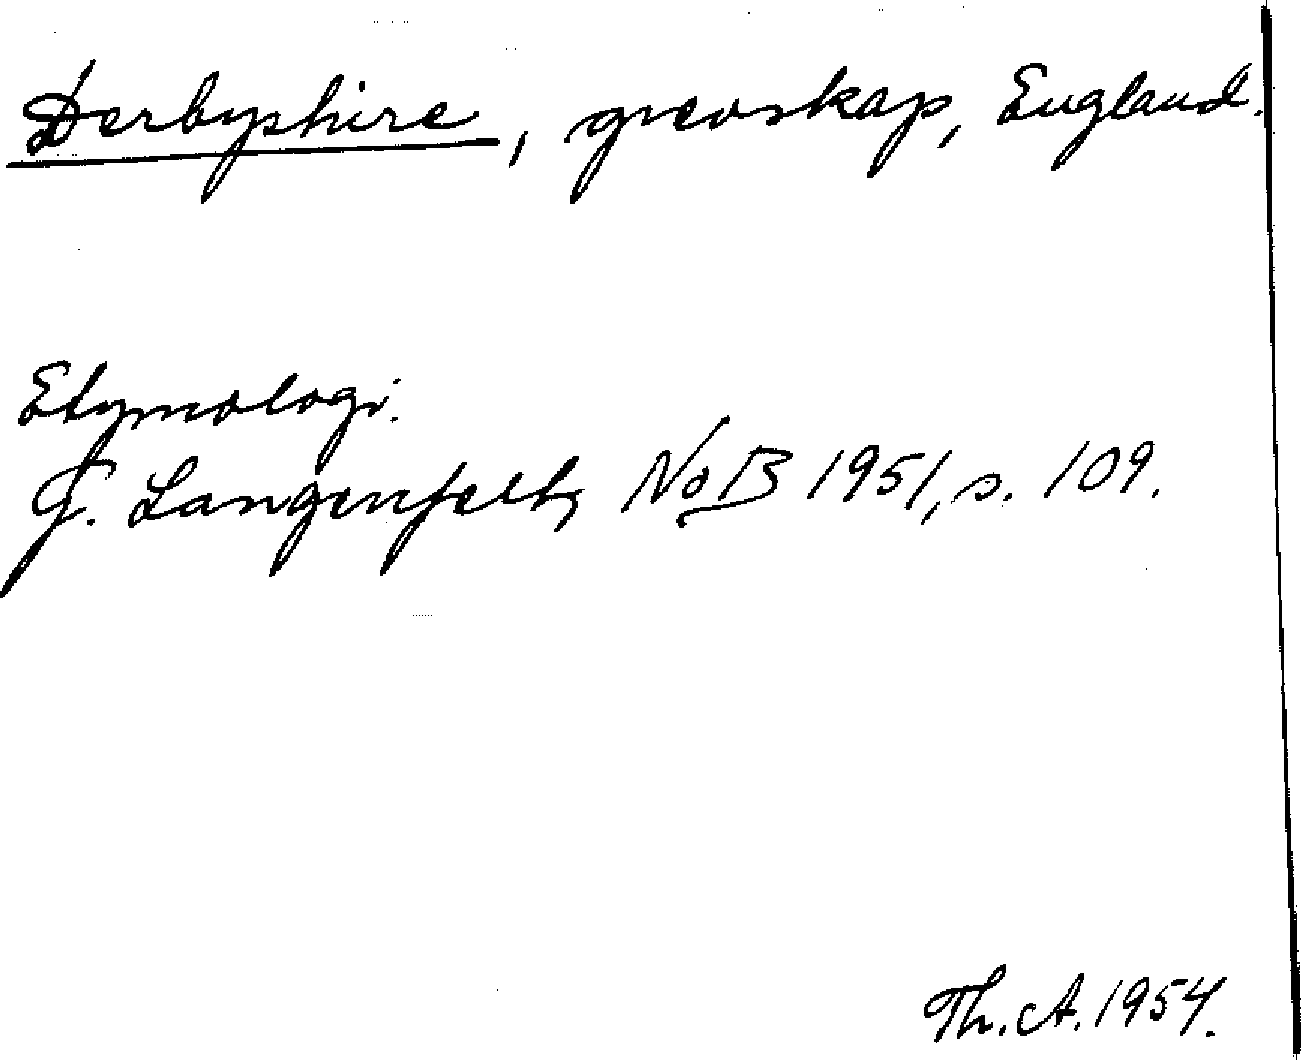 Derbyshire, grevskap, England.
Etymologi.
G. Langenfelt, NoB 1951, s. 109.
Th. A. 1954.